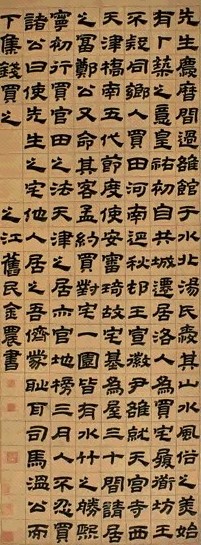 先生慶曆間過雒館于水北湯氏愛其山水風俗之美始
有卜築之意皇祐初自共城遷居洛人爲買宅履衜坊王
不疑同鄉人買田河南延秋邨王宣徽尹雒就天宮寺西
天津橋南五代節度使安審琦故宅基爲屋三十間請居
之冨鄭公又命其客孟約買對宅一園皆有水竹之勝熙
寧初行買官田之法天津之居亦官地榜三月人不忍買
諸公曰使先生之宅他人居之吾儕蒙恥耳司馬溫公而
下集錢買之 之江舊民金農書